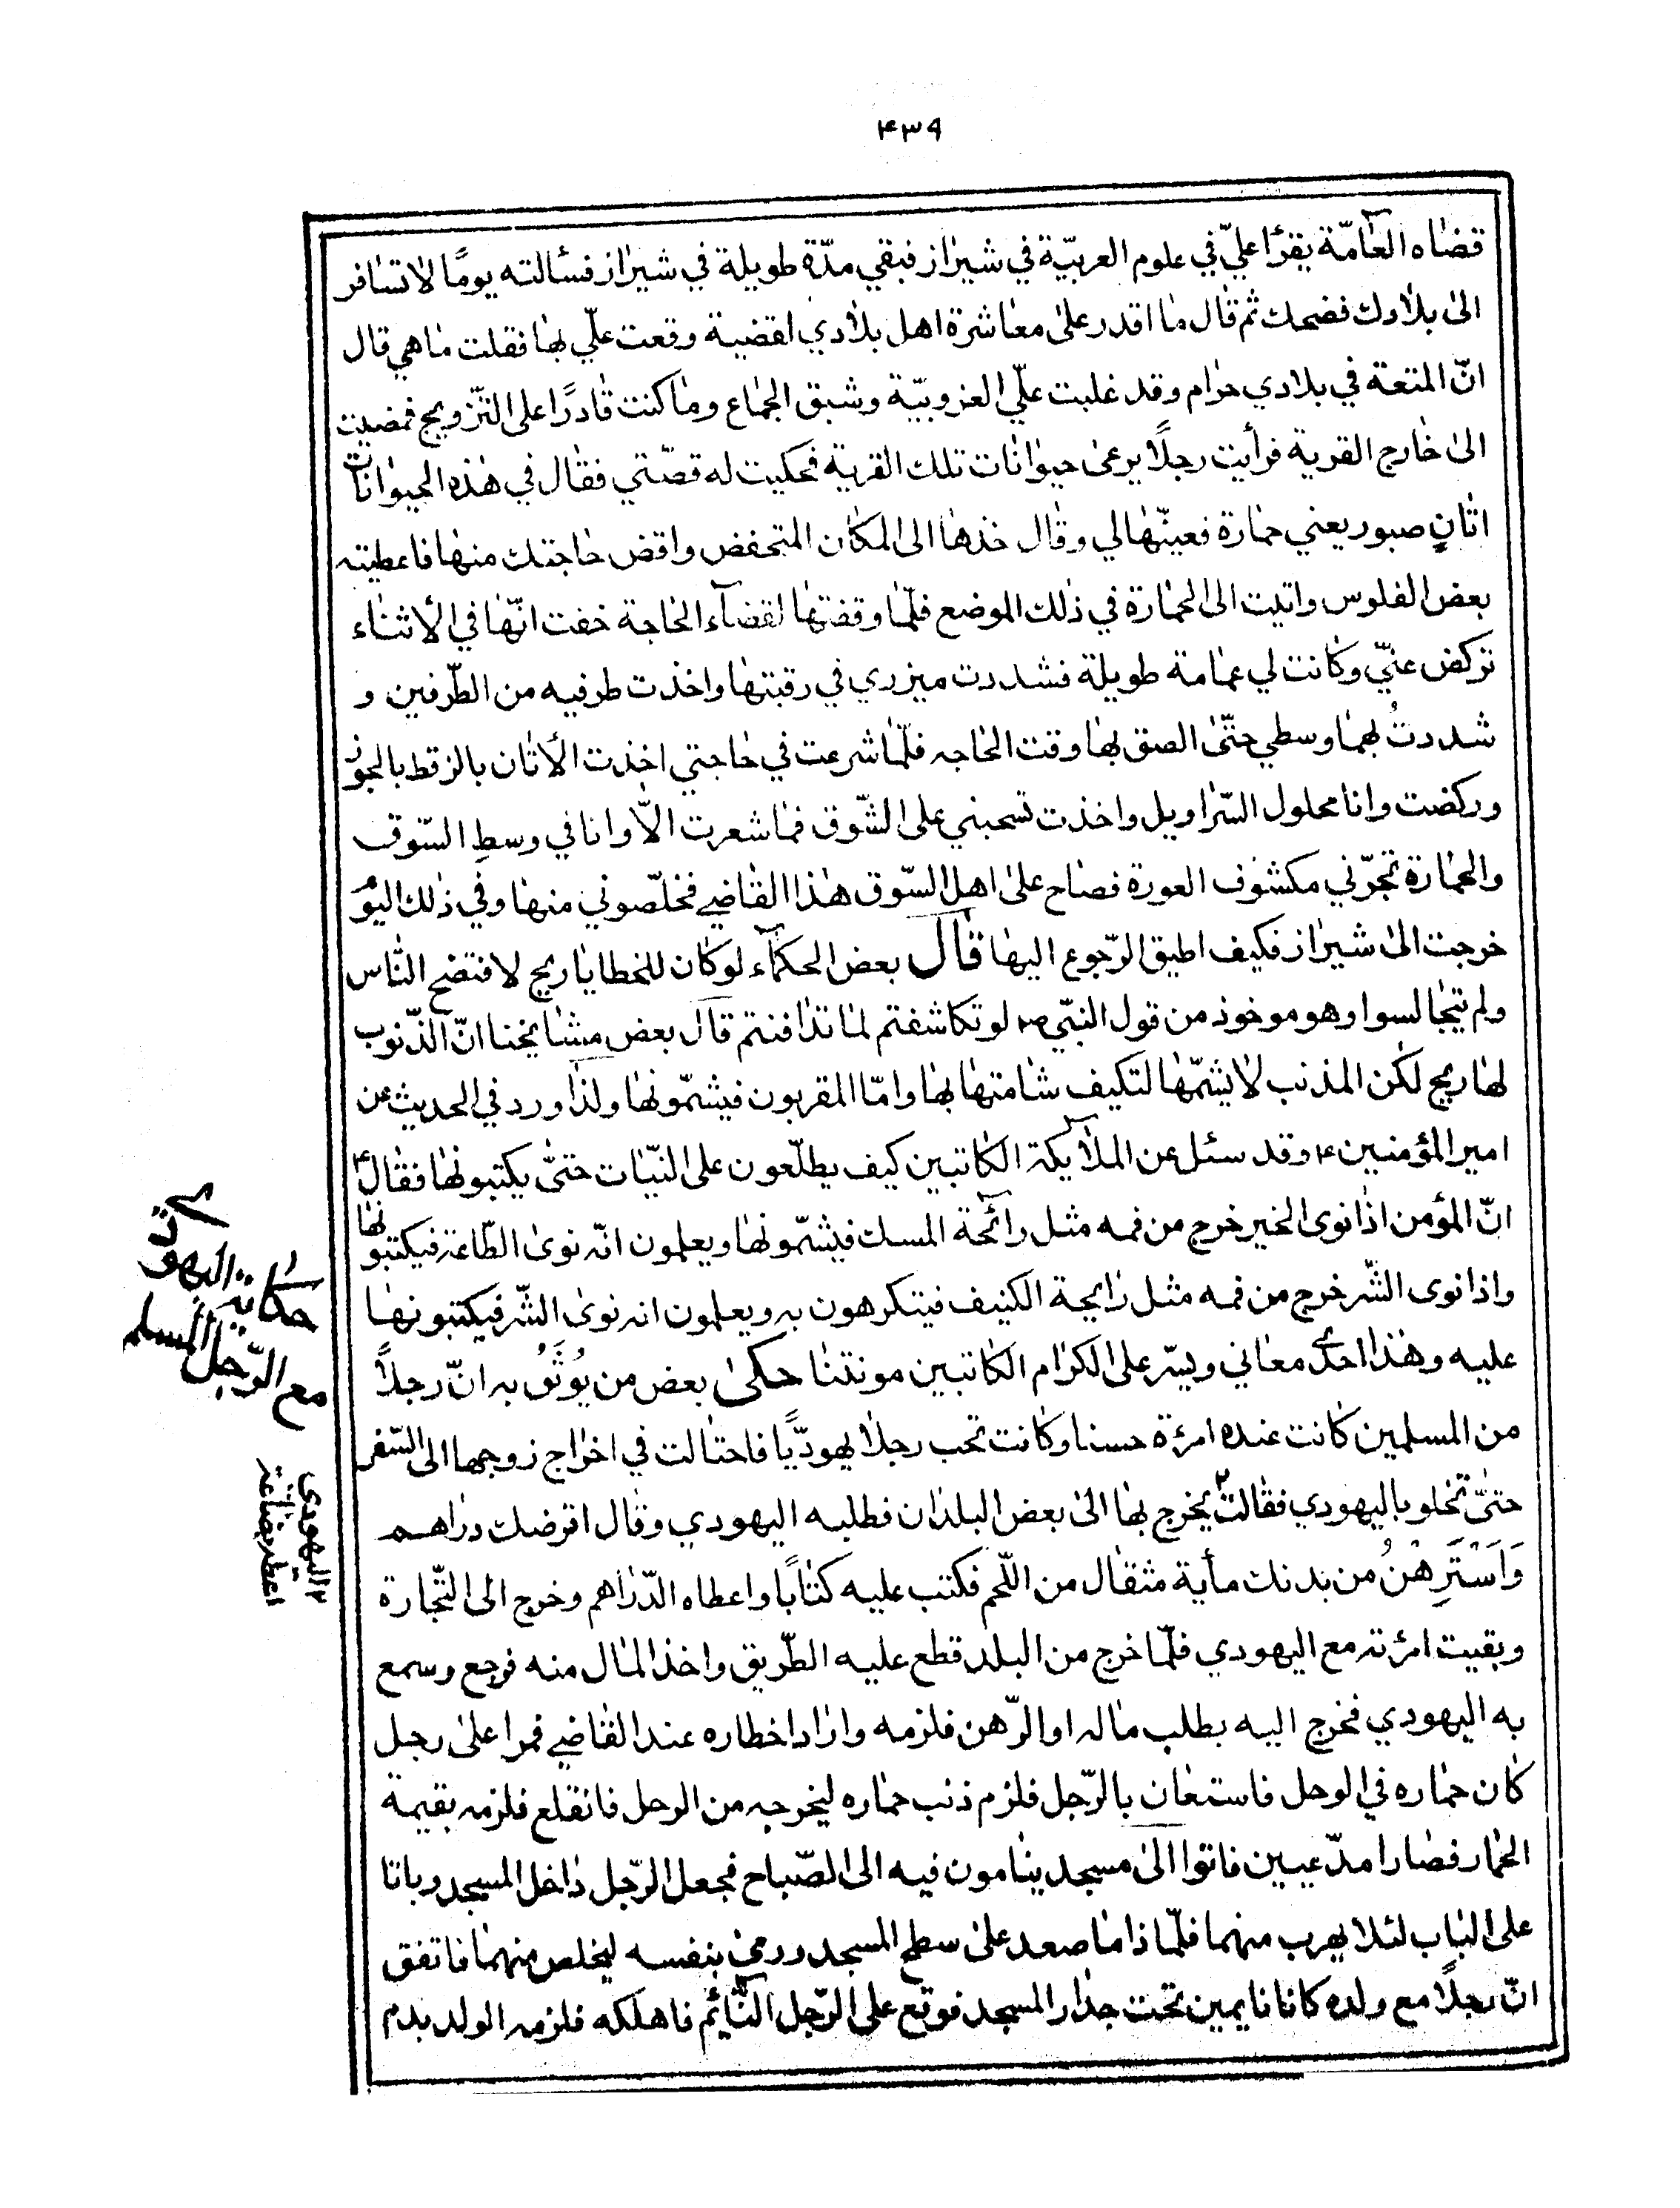 ۴۳۹
قضاه العامّة يقرأ عليّ في علوم العربيّة في شيراز فبقي مدّة طويلة في شيراز فسألته يومًا لا تسافر
الى بلادك فضحك ثم قال ما اقدر على معاشرة اهل بلادي لقضية وقعت علّي بها فقلت ما هي قال
انّ المتعة في بلادي حرام وقد غلبت علّي العزوبيّة وشبق الجماع وما كنت قادرًا على التّزويج فمضيت
الى خارج القرية فرأيت رجلًا يرعى حيوانات تلك القرية فحكيت له قصّتي فقال في هذه الحيوانات
اتانٍ صبور يعني حمارة فعيّنها لي وقال خذها الى المكان المتخفض واقض حاجتك منها فاعطيته
بعض الفلوس واتيت الى الحمارة في ذلك الموضع فلمّا وقفتها لقضآء الحاجة خفت انّها في الأثناء
تركض عنّي وكانت لي عمامة طويلة فشددت ميزري في رقبتها واخذت طرفيه من الطّرفين و
شددتُ بهما وسطي حتّى الصق بها وقت الحاجه فلمّا شرعت في حاجتي اخذت الأتان بالزقط بالجوز
وركضت وانا محلول السّراويل واخذت تسحبني على الشّوق فما شعرت الّا وانا في وسطِ السّوق
والحمارة تجرّني مكشوف العورة فصاح على اهل السّوق هذا القاضي فخلّصوني منها وفي ذلك اليوم
خرجت الى شيراز فكيف اطيق الرّجوع اليها قال بعض الحكمآء لو كان للخطايا ريح لافتضح النّاس
ولم يتجالسوا وهو موخوذ من قول النبّي ص لو تكاشفتم لما تدافنتم قال بعض مشايخنا انّ الذّنوب
لها ريح لكن المذنب لا يشمّها لتكيف شامتها بها وامّا المقربون فيشمّونها ولذا ورد في الحديث عن
امير المؤمنين ع وقد سئل عن الملآيكة الكاتبين كيف يطلّعون على النيّات حتىّ يكتبونها فقال ع
انّ المؤمن اذا نوى الخير خرج من فمه مثل رآئحة المسك فيشمّونها ويعلمون انّه نوى الطّاعة فيكتبونها
واذا نوى الشّر خرج من فمه مثل رايحة الكنيف فيتكرهون به ويعلمون انه نوى الشّر فيكتبونها
عليه وهذا احد معاني ويسّر على الكرام الكاتبين مونتنا حكى بعض من يُوثَقُ به انّ رجلًا
من المسلمين كانت عنده امرءة حسنا وكانت تحب رجلا يهوديًّا فاحتالت في اخراج زوجها الى السّفر
حتىّ تخلو باليهودي فقالت ۲ يخرج بها الى بعض البلدان فطلبه اليهودي وقال اقرضك دراهم
وَاَسْتَرِهْنُ من بدنك مأية مثقال من اللّحم فكتب عليه كتابًا واعطاه الدّراهم وخرج الى التّجارة
وبقيت امرءته مع اليهودي فلمّا خرج من البلد قطع عليه الطّريق واخذ المال منه فرجع وسمع
به اليهودي فخرج اليه يطلب ماله او الرّهن فلزمه واراد اخطاره عند القاضي فمرا على رجل
كان حماره في الوحل فاستعان بالرّجل فلزم ذنب حماره ليخرجه من الوحل فانقلع فلزمه بقيمة
الحمار فصارا مدّعيين فاتوا الى مسجد ينامون فيه الى الصّباح فجعل الرّجل داخل المسجد وباتا
على الباب لئلا يهرب منهما فلمّا ذاما صعد على سطح المسجد ورمى بنفسه ليخلص منهما فاتفق
انّ رجلًا مع ولده كانا نايمين تحت جدار المسجد فوقع على الرّجل النّآئم فاهلكه فلزمه الولد بدم
حكاية اليهودي
مع الرّجل المسلم
۲ اليهودى
اعطه بضاعة